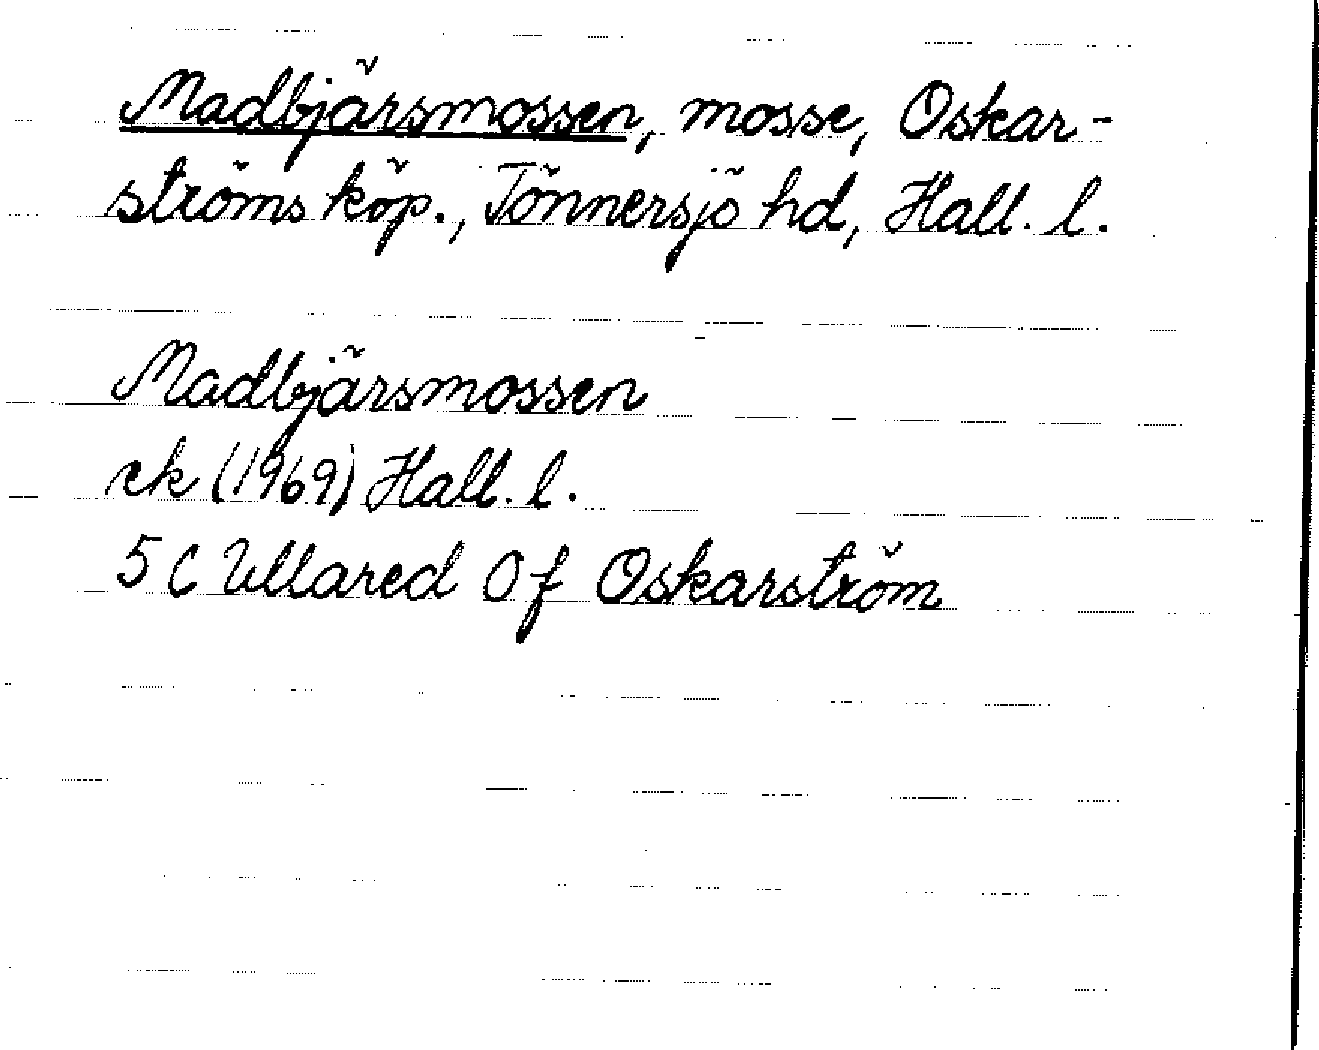 Madbjärsmossen, mosse, Oskar-
ströms köp., Tönnersjö hd, Hall. l.
Madbjärsmossen
ek (1969) Hall. l.
5 C Ullared 0 f Oskarström